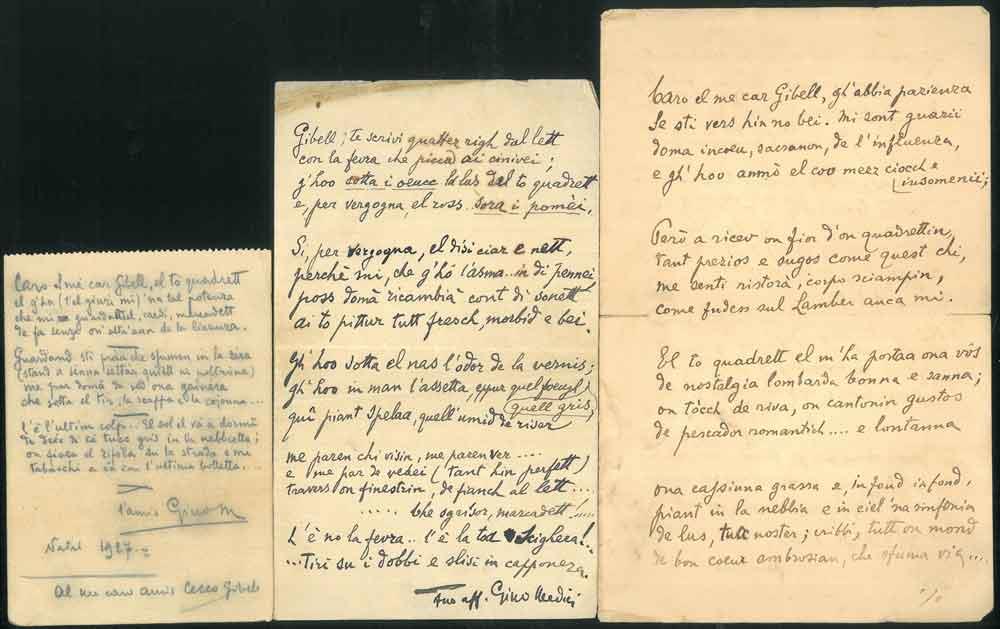 Caro el mè car Gibell, el to quadrett
el g'ha (t'el giuri mi) 'na tal potenza
che mi guardandel, credi, maradett
de fa senza on' altr'ann de la licenza.
Guardand sti praa che spumen in la sira
(stand a
me par domà de ved ona gainera
che sotta el tir, la scappa e la
L'è l'ultim colp... El sol el va a dormì
de dree di cà tucc gris in la nebbietta;
on el rifola su la strada e mi
tabacchi a cà con l'ultima bolletta...
l'amis Gino M
Natal 1927
Al me caro amis Cecco Gibell
Gibell; te scrivi quatter righ dal lett
con la fevra che ai cinivei;
g'hoo sotta i oeucc la lus del to quadrett
e, per vergogna, el ross sora i pomèi.
Si, per vergogna, el disi ciar e nett,
perchè mi, che g'hó l'asma.. in di pennei
poss domà ricambià cont di sonett
ai to pittur tutt fresch, morbid e bei.
Gh'hoo sotta el nas l'ódor de la vernis;
gh'hoo in man l'assetta, eppur quel foeuj)
(quell gris,
quì piant spelaa, quell'umid de riser
me paren chì visin, me paren ver....
e me par de vedei (tant hin perfett)
travers on finestrin, de fianch al lett....
..... Che sgrisor, maradett!.....
L'è no la fevra.. l'è la toa Scighera!..
...Tiri su i dobbi e slisi in capponera.
tuo aff. Gino Medici
Caro el me car Gibell, gh'abbia pazienza
Se sti vers hin no bei. Mi sont guarii
doma incoeu, sacranon, de l'influenza,
e gh'hoo anmò el coo meez ciocch e
(insomenii;
Però a ricev on fior d'on quadrettin,
tant prezios e sugos come quest chì,
me senti ristorà, corpo sciampin,
come fudess sul Lamber anca mì.
El to quadrett el m'ha portaa ona vôs
de nostalgia lombarda bonna e sanna;
on tòcch de riva, on cantonin gustos
de pescador romantich.... e lontanna
ona cassinna grassa e, in fond in fond,
piant in la nebbia e in ciel 'na sinfonia
de lus, tutt noster; cribbi, tutt on mond
de bon coeur ambrosian, che sfuma via....